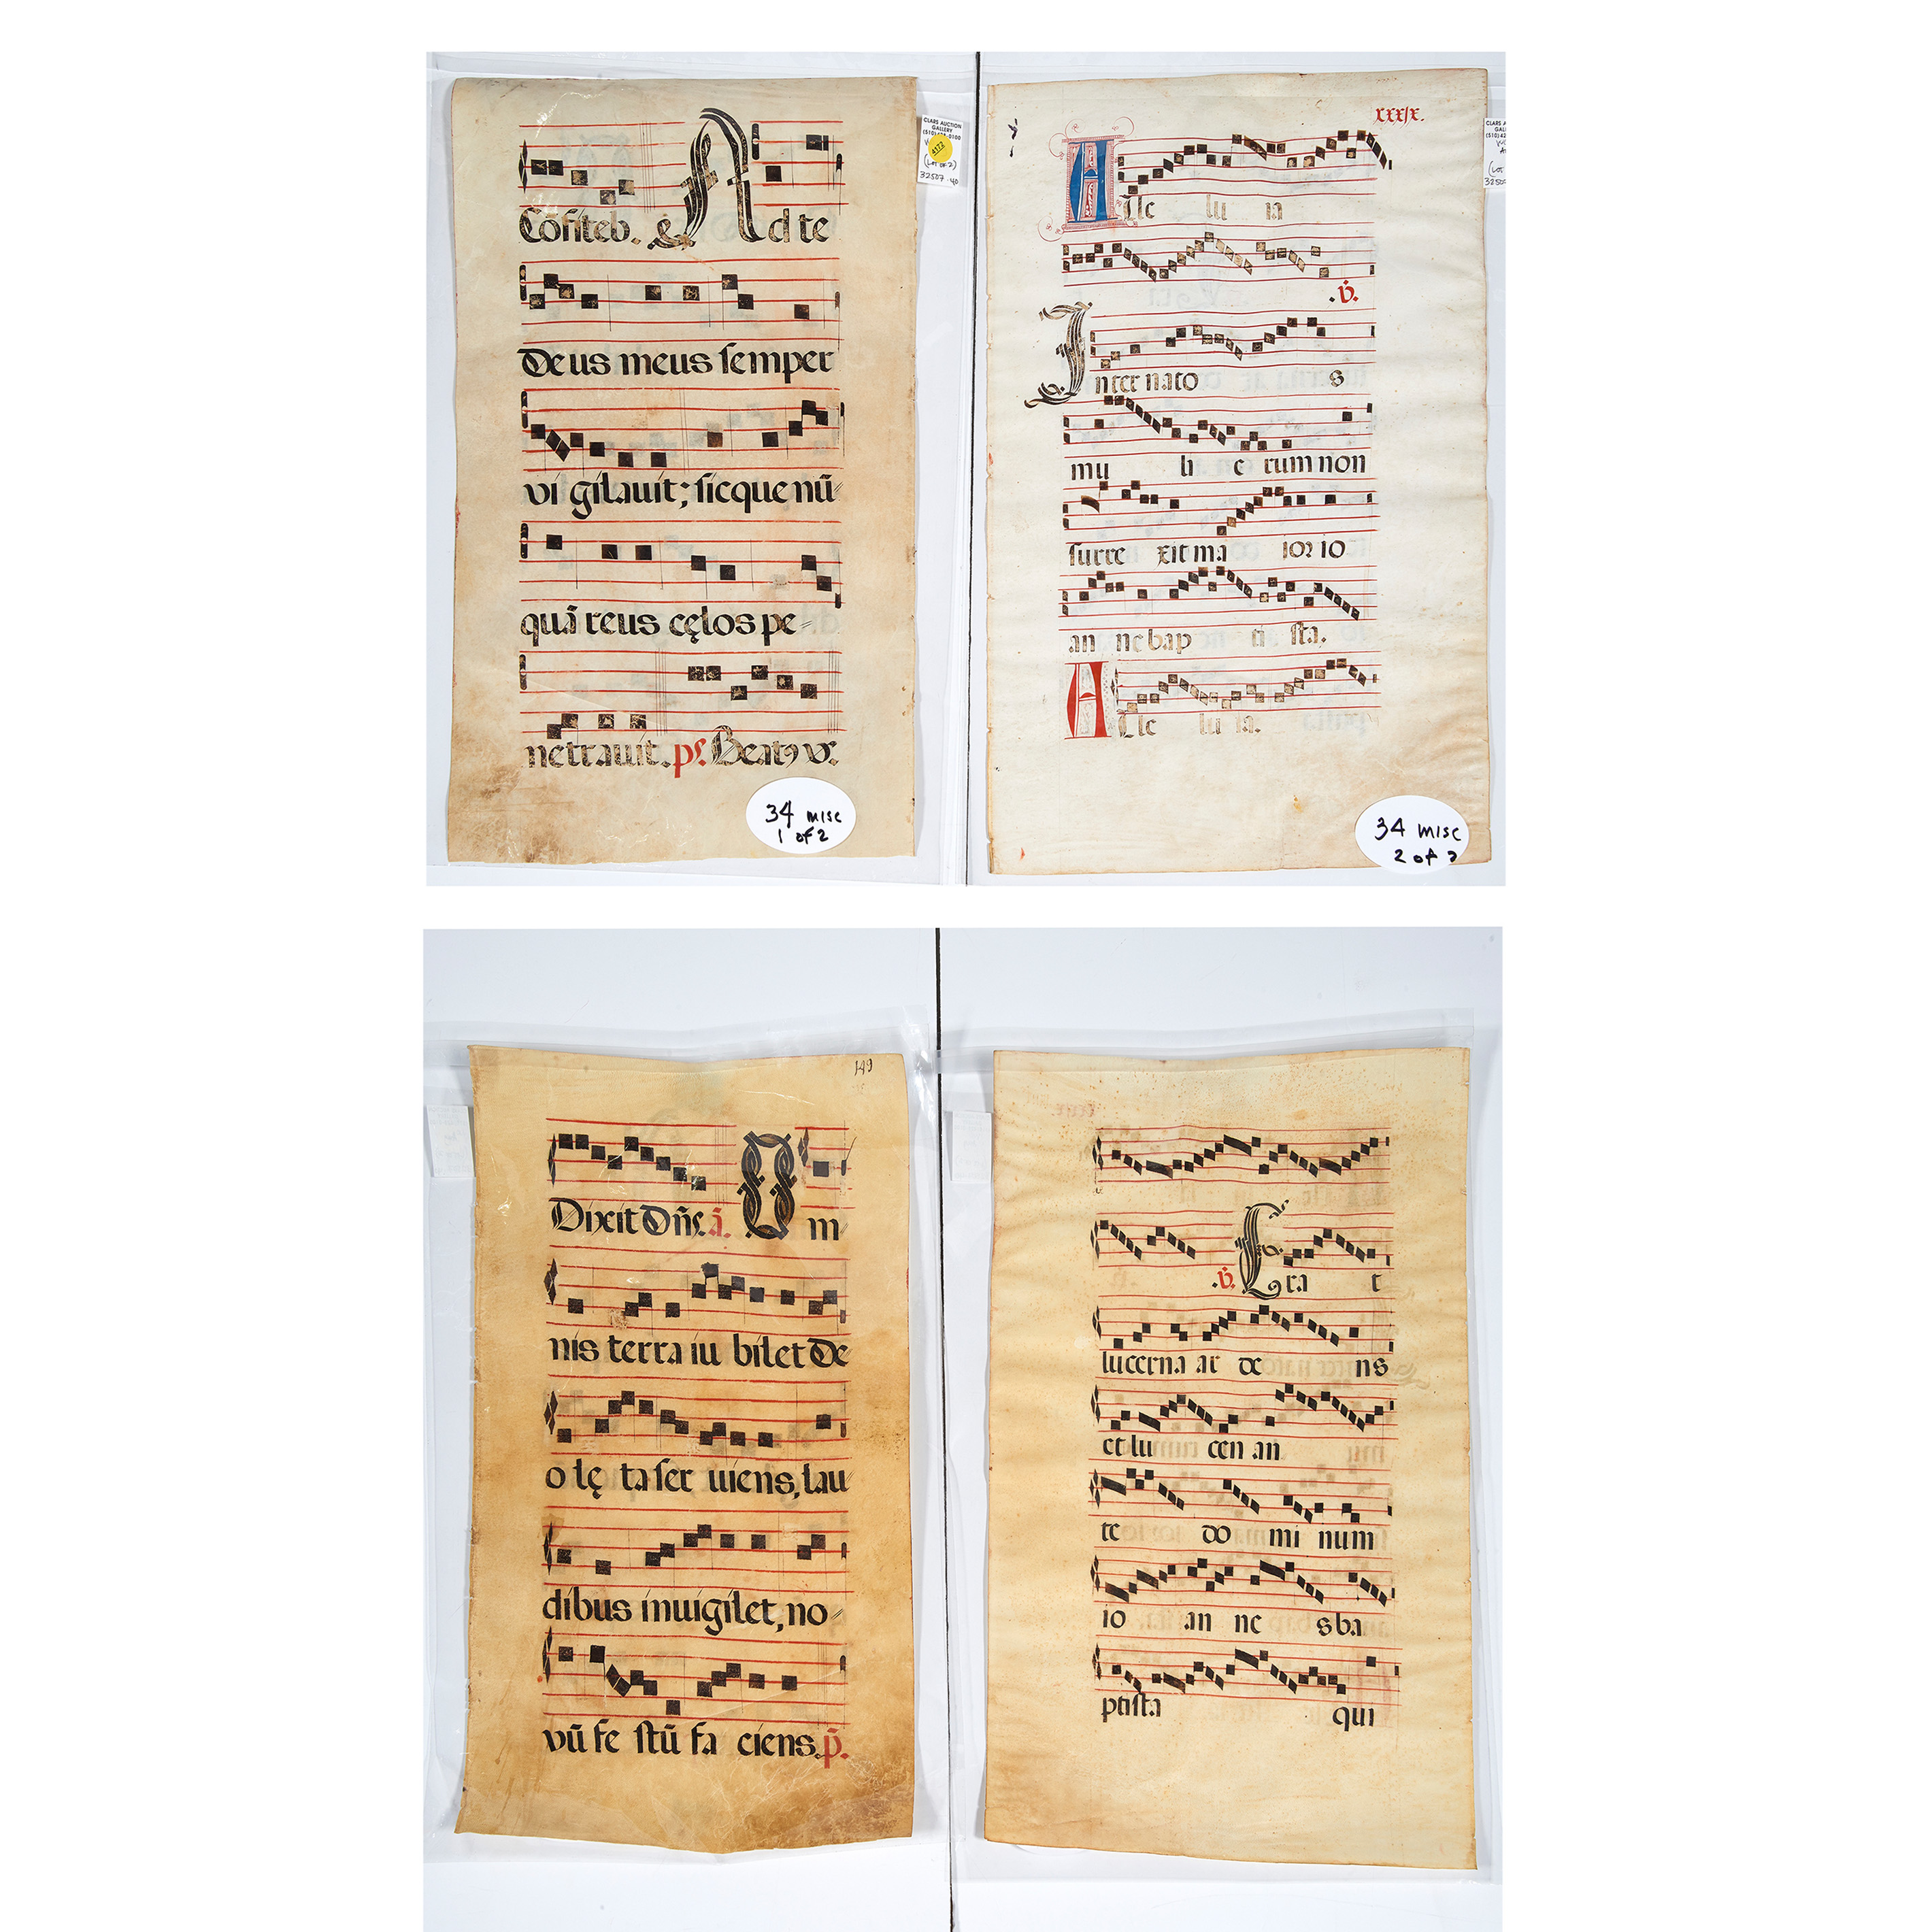 Cõfiteb. ẽ Ad te
Deus meus semper
vi gilauit; sicque nũ
quã reus cęlos pe
netrauit. ps. Beat9 vr.
CLARS AUCTION
GALLERY
4172
(LOT OF 2)
32507-40
34 misc
1 of 2
xxxix.
Alle lu ia
.v.
Inter nato s
mu li e rum non
surre xit ma ior io
an ne bap ti sta.
Alle lu ia.
34 misc
2 of 2
149
Dixit Dñs. ã. Om
nis terra iu bilet De
o lę ta ser uiens, lau
dibus inuigilet, no
vũ fe stũ fa ciens. p̃.
.v. Era t
lucerna ar de ns
et lu cen an
te do mi num
io an ne s ba
ptista qui